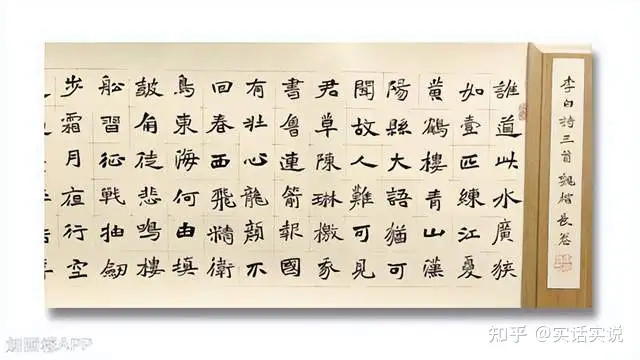 李白詩三首 魏楷長卷
誰道此水廣狹
如壹匹練江夏
黄鶴樓青山漢
陽縣大語猶可
聞故人難可見
君草陳琳檄我
書魯連箭報國
有壯心龍顏不
回春西飛精衛
鳥東海何由填
鼓角徒悲鳴樓
船習征戰抽劍
步霜月夜行空
知乎 @实话实说